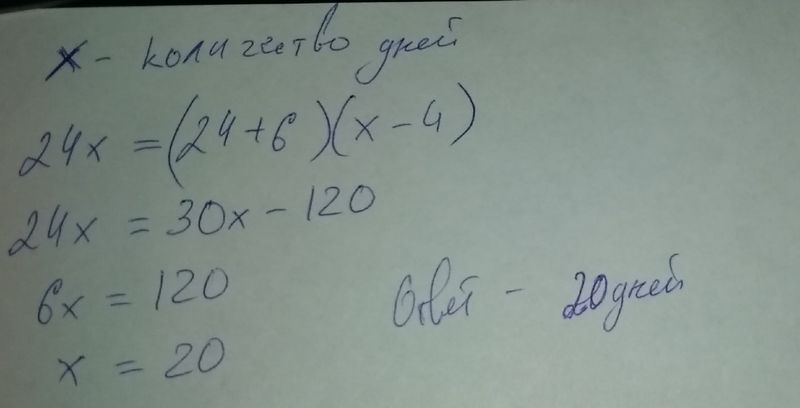 x - количество дней
24x = (24+6)(x-4)
24x = 30x - 120
6x = 120
x = 20
Ответ - 20 дней